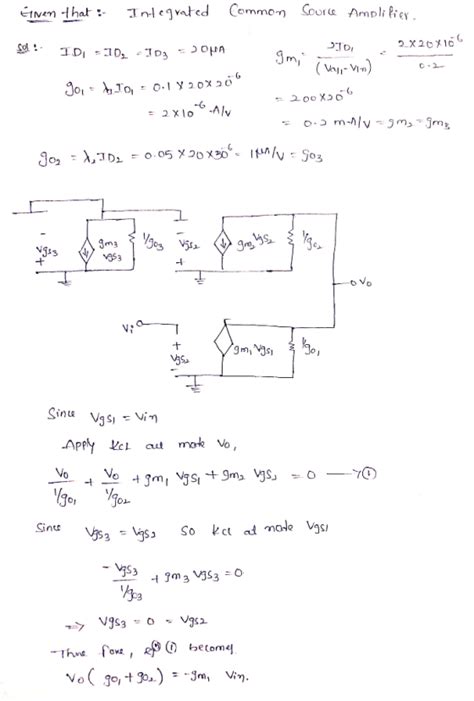 Given that :- Integrated Common Source Amplifier.
Sol :- ID1 = ID2 = ID3 = 20μA
gm1 = 2ID1 / (Vgs1-Vtn) = 2×20×10^-6 / 0.2
go1 = λ1 ID1 = 0.1 × 20×10^-6
= 200×10^-6
= 2×10^-6 A/V
= 0.2 mA/V = gm2 = gm3
go2 = λ2 ID2 = 0.05 × 20×10^-6 = 1μA/V = go3
- Vgs3 + gm3 Vgs3 1/go3 - Vgs2 + gm2 Vgs2 1/go2
Vo
Vi
+ Vgs1 - gm1 Vgs1 1/go1
Since Vgs1 = Vin
Apply KCL at node Vo,
Vo / 1/go1 + Vo / 1/go2 + gm1 Vgs1 + gm2 Vgs2 = 0 → ①
Since Vgs3 = Vgs2 so KCL at node Vgs1
- Vgs3 / 1/go3 + gm3 Vgs3 = 0
=> Vgs3 = 0 = Vgs2
There fore, eqn ① becomes
Vo ( go1 + go2 ) = -gm1 Vin.